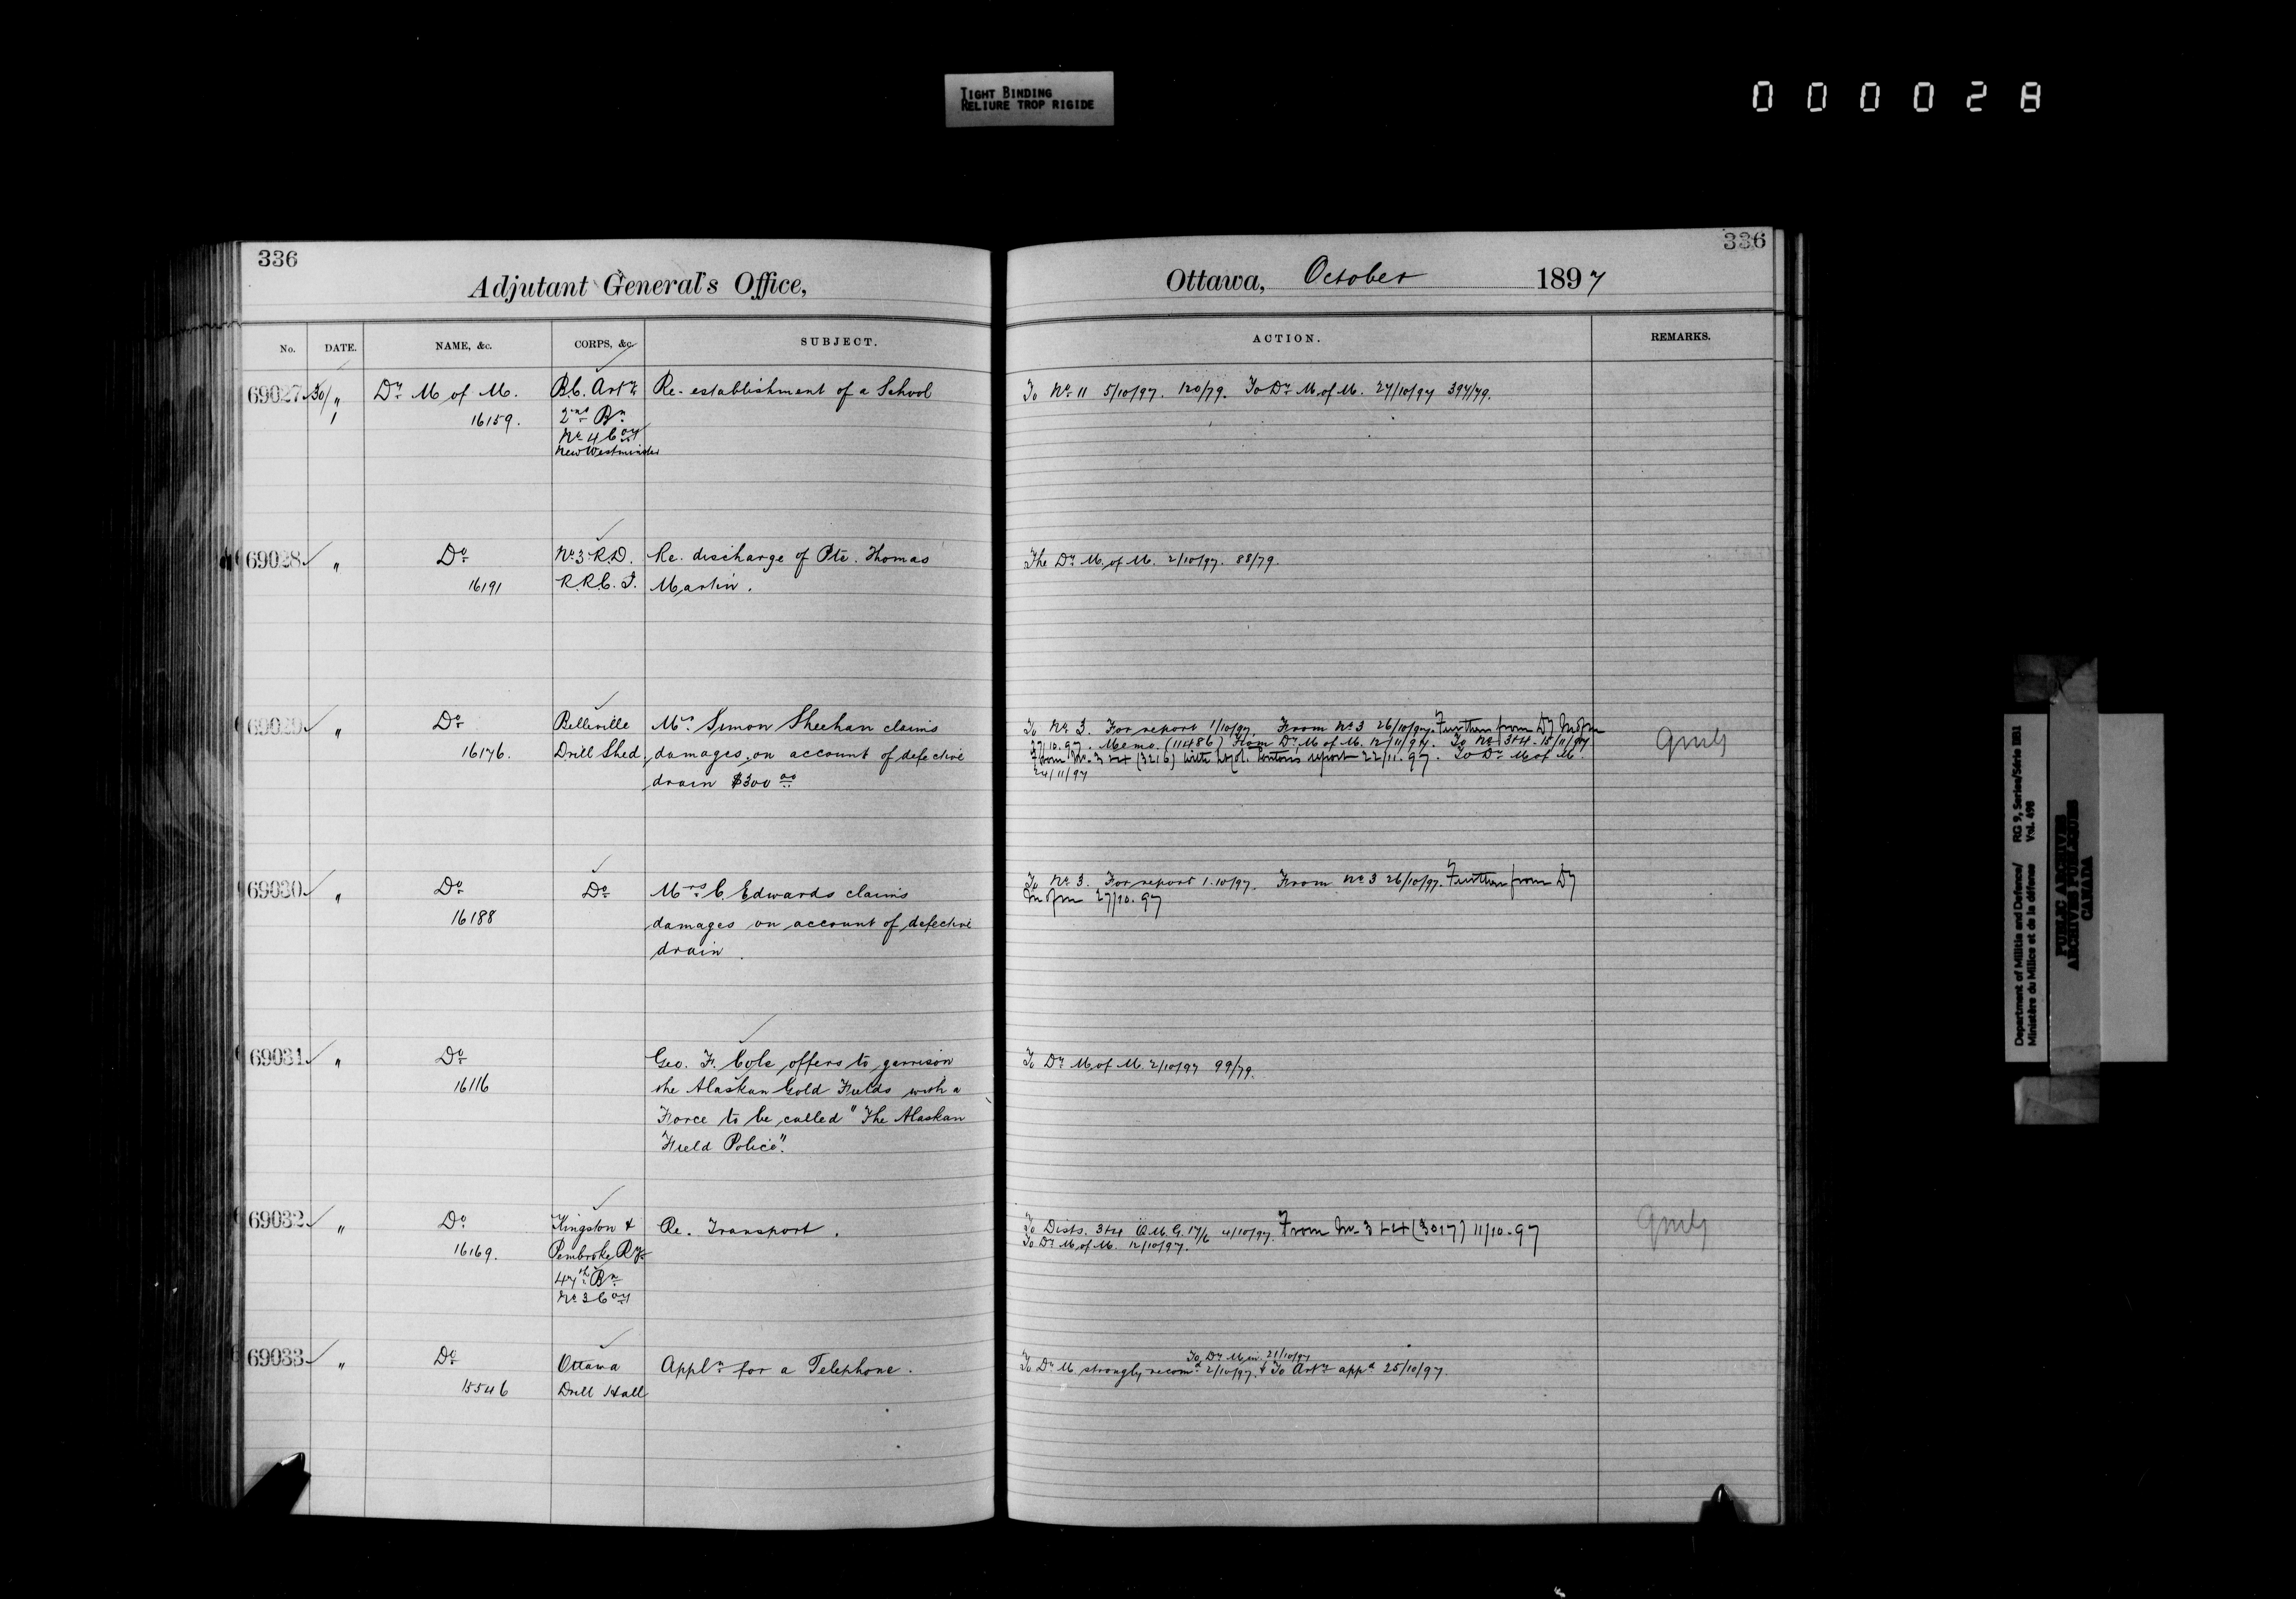 TIGHT BINDING
RELIURE TROP RIGIDE
000028
336
336
Adjutant General's Office,
Ottawa, October 1897
No. DATE. NAME, &c. CORPS, &c. SUBJECT. ACTION. REMARKS.
69027 30/ " Dy M of M. B.C. Arty Re-establishment of a School To No 11 5/10/97. 120/79. To Dy M. of M. 27/10/97 394/79.
16159. 2nd Bn
No 4 Coy
New Westminster
69028 " Do No 3 R.D. Re. discharge of Pte. Thomas The Dy M. of M. 2/10/97. 88/79.
16191 R.R.C.I. Martin.
69029 " Do Belleville Mrs Simon Sheehan claims To No 3. For report 1/10/97. From No 3 26/10/97. Further from Dy M of M
16176. Drill Shed, damages on account of defective 27/10.97. Memo. (11486) From Dy M of M. 12/11/97. To No 3+4. 15/11/97
drain $300 00 From No. 3 +4 (3216) with report 22/11.97. To Dy M of M.
24/11/97
69030 " Do Do Mrs C. Edwards claims To No 3. For report 1.10/97. From No 3 26/10/97. Further from Dy
16188 damages on account of defective M of M 27/10.97
drain.
69031 " Do Geo. F. Cole offers to garrison To Dy M of M. 2/10/97 99/79.
16116 the Alaskan Gold Fields with a
Force to be called "The Alaskan
Field Police".
69032 " Do Kingston & Re. Transport. To Dists. 3+4 Q.M.G. 17/6 4/10/97. From No. 3 +4 (3017) 11/10.97
16169. Pembroke Ry To Dy M of M. 12/10/97.
47th Bn
No 3 Coy
69033 " Do Ottawa Appln for a Telephone. To Dy M. strongly recomd 2/10/97. + To Arty appd 25/10/97.
To Dy Min. 21/10/97
15546 Drill Hall
Department of Militia and Defence/ RG 9, Series/Série IIB1
Ministère du Milice et de la défense Vol. 498
PUBLIC ARCHIVES
ARCHIVES PUBLIQUES
CANADA